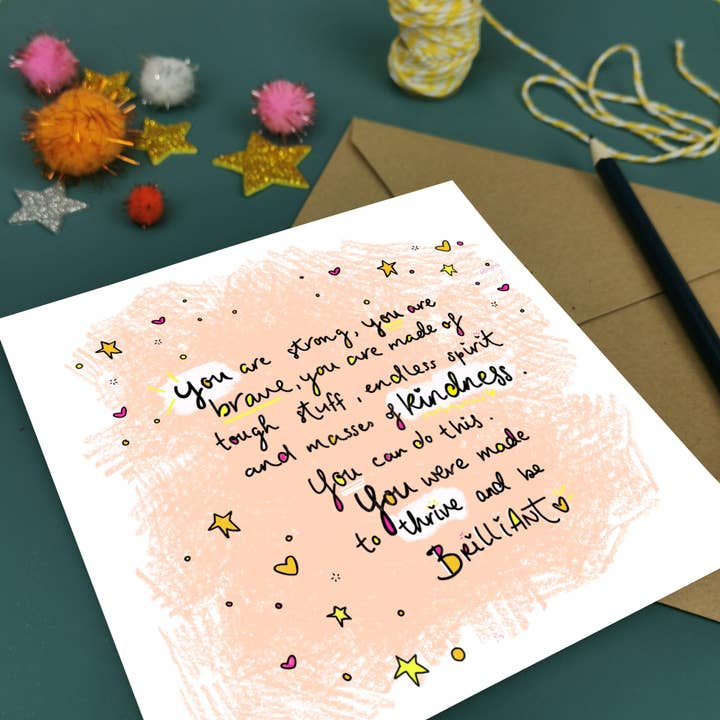 You are strong, you are
brave, you are made of
tough stuff, endless spirit
and masses of kindness.
You can do this.
You were made
to thrive and be
BRilliANT